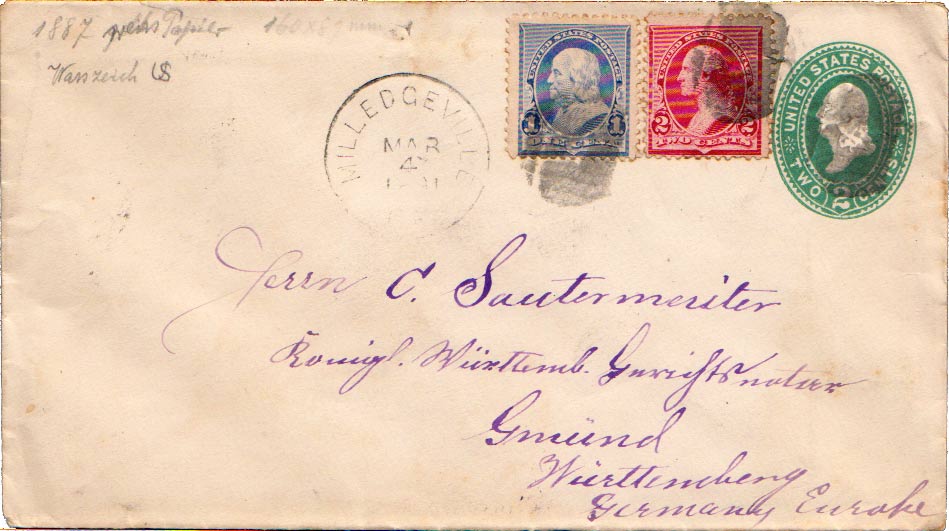 1887 weiß Papier 160x89 mm
Wasszeich US
UNITED STATES POSTAGE
1 1
ONE CENT
UNITED STATES POSTAGE
2 2
TWO CENTS
UNITED STATES POSTAGE
TWO 2 CENTS
MILLEDGEVILLE
MAR
4
Herrn C. Sautermeister
Königl. Württemb. Gerichtsnotar
Gmünd
Württemberg
Germany Europe